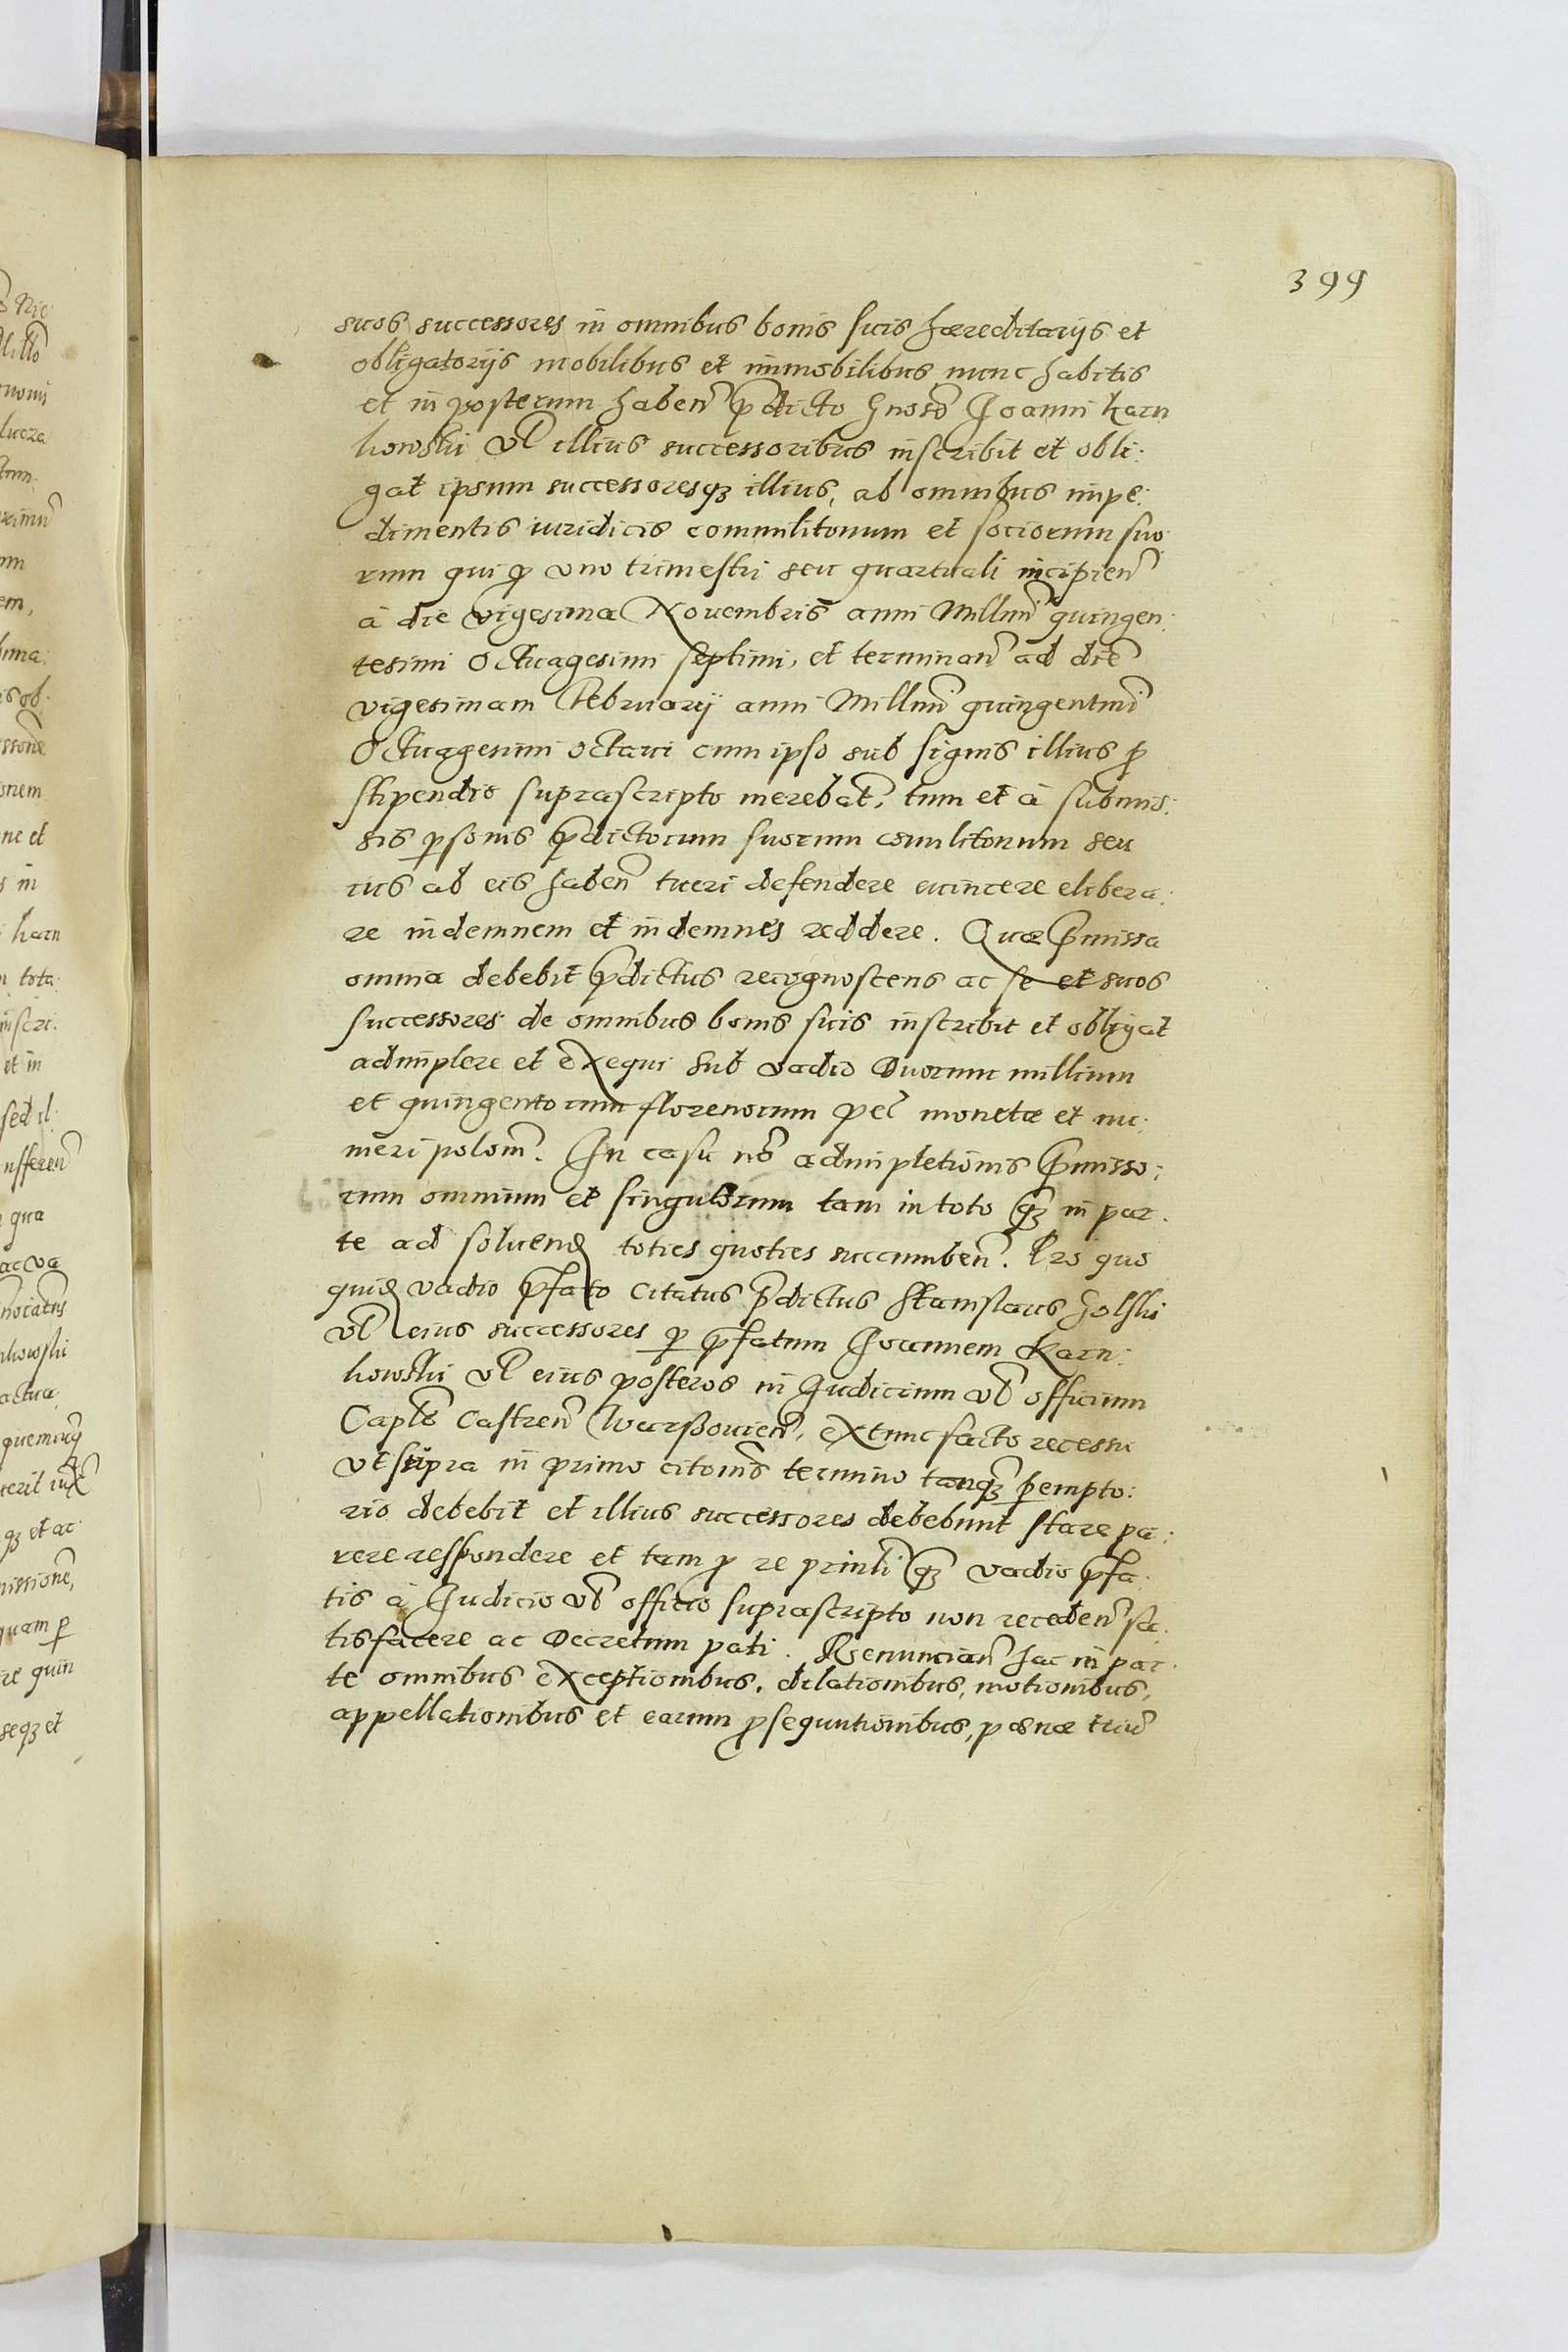 399
suos successores in omnibus bonis suis haereditarijs et
obligatorijs mobilibus et immobilibus nunc habitis
et in posterum haben̄ p̄dicto Gnoso Joanni Karn
kowski vel illius successoribus inscribit et obli:
gat ipsum successoresq₃ illius, ab omnibus impe:
dimentis iuridicis commilitonum et sociorum suo
rum qui p̱ uno trimestri seu quartuali incipien̄
à die vigesima Nouembris anni Millmi quingen:
tesimi Octuagesimi septimi, et terminan̄ ad diē
vigesimam Februarij anni Millmi quingentmi
Octuagesimi octaui cum ipso sub signis illius p̱
stipendio suprascripto merebat̄, tum et à submis:
sis p̱sonis p̄dictorum suorum comilitonum seu
ius ab eis haben̄ tueri defendere euincere elibera:
re indemnem et indemnes reddere. Quae p̄missa
omnia debebit p̄dictus recognoscens ac se et suos
successores de omnibus bonis suis inscribit et obligat
adimplere et exequi sub vadio Duorum millium
et quingentorum florenorum pēc monetae et nu:
meri polon̄. In casu nō adimpletionis p̄misso:
rum omnium et singulorum tam in toto q̄₃ in par:
te ad soluend toties quoties succumben̄. Pro quo
quid vadio p̄fato citatus p̄dictus Stanislaus Golski
vel eius successores p̱ p̄fatum Joannem Karn:
kowski vel eius posteros in Judicium vel officium
Capłe Castren̄ Warßouien̄, extunc facto recessu
vt supra in primo citōnis termino tanq̄₃ p̱empto:
rio debebit et illius successores debebunt stare pa:
rere respondere et tam p̱ re prinli q̄₃ vadio p̄fa:
tis à Judicio vel officio suprascripto non receden̄ sa:
tisfacere ac Decretum pati. Renuncian̄ hac in par:
te omnibus exceptionibus, dilationibus, motionibus,
appellationibus et earum p̱sequutionibus, poenae triū